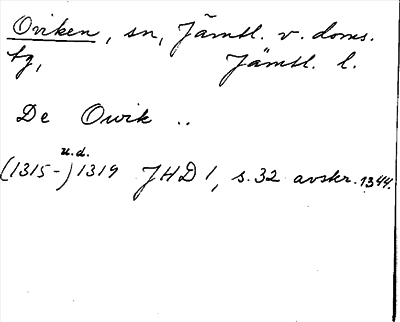 Oviken, sn, Jämtl. v. doms.
tg, Jämtl. l.
De Owik ..
u.d.
(1315-) 1319 JHD 1, s. 32 avskr. 1344.